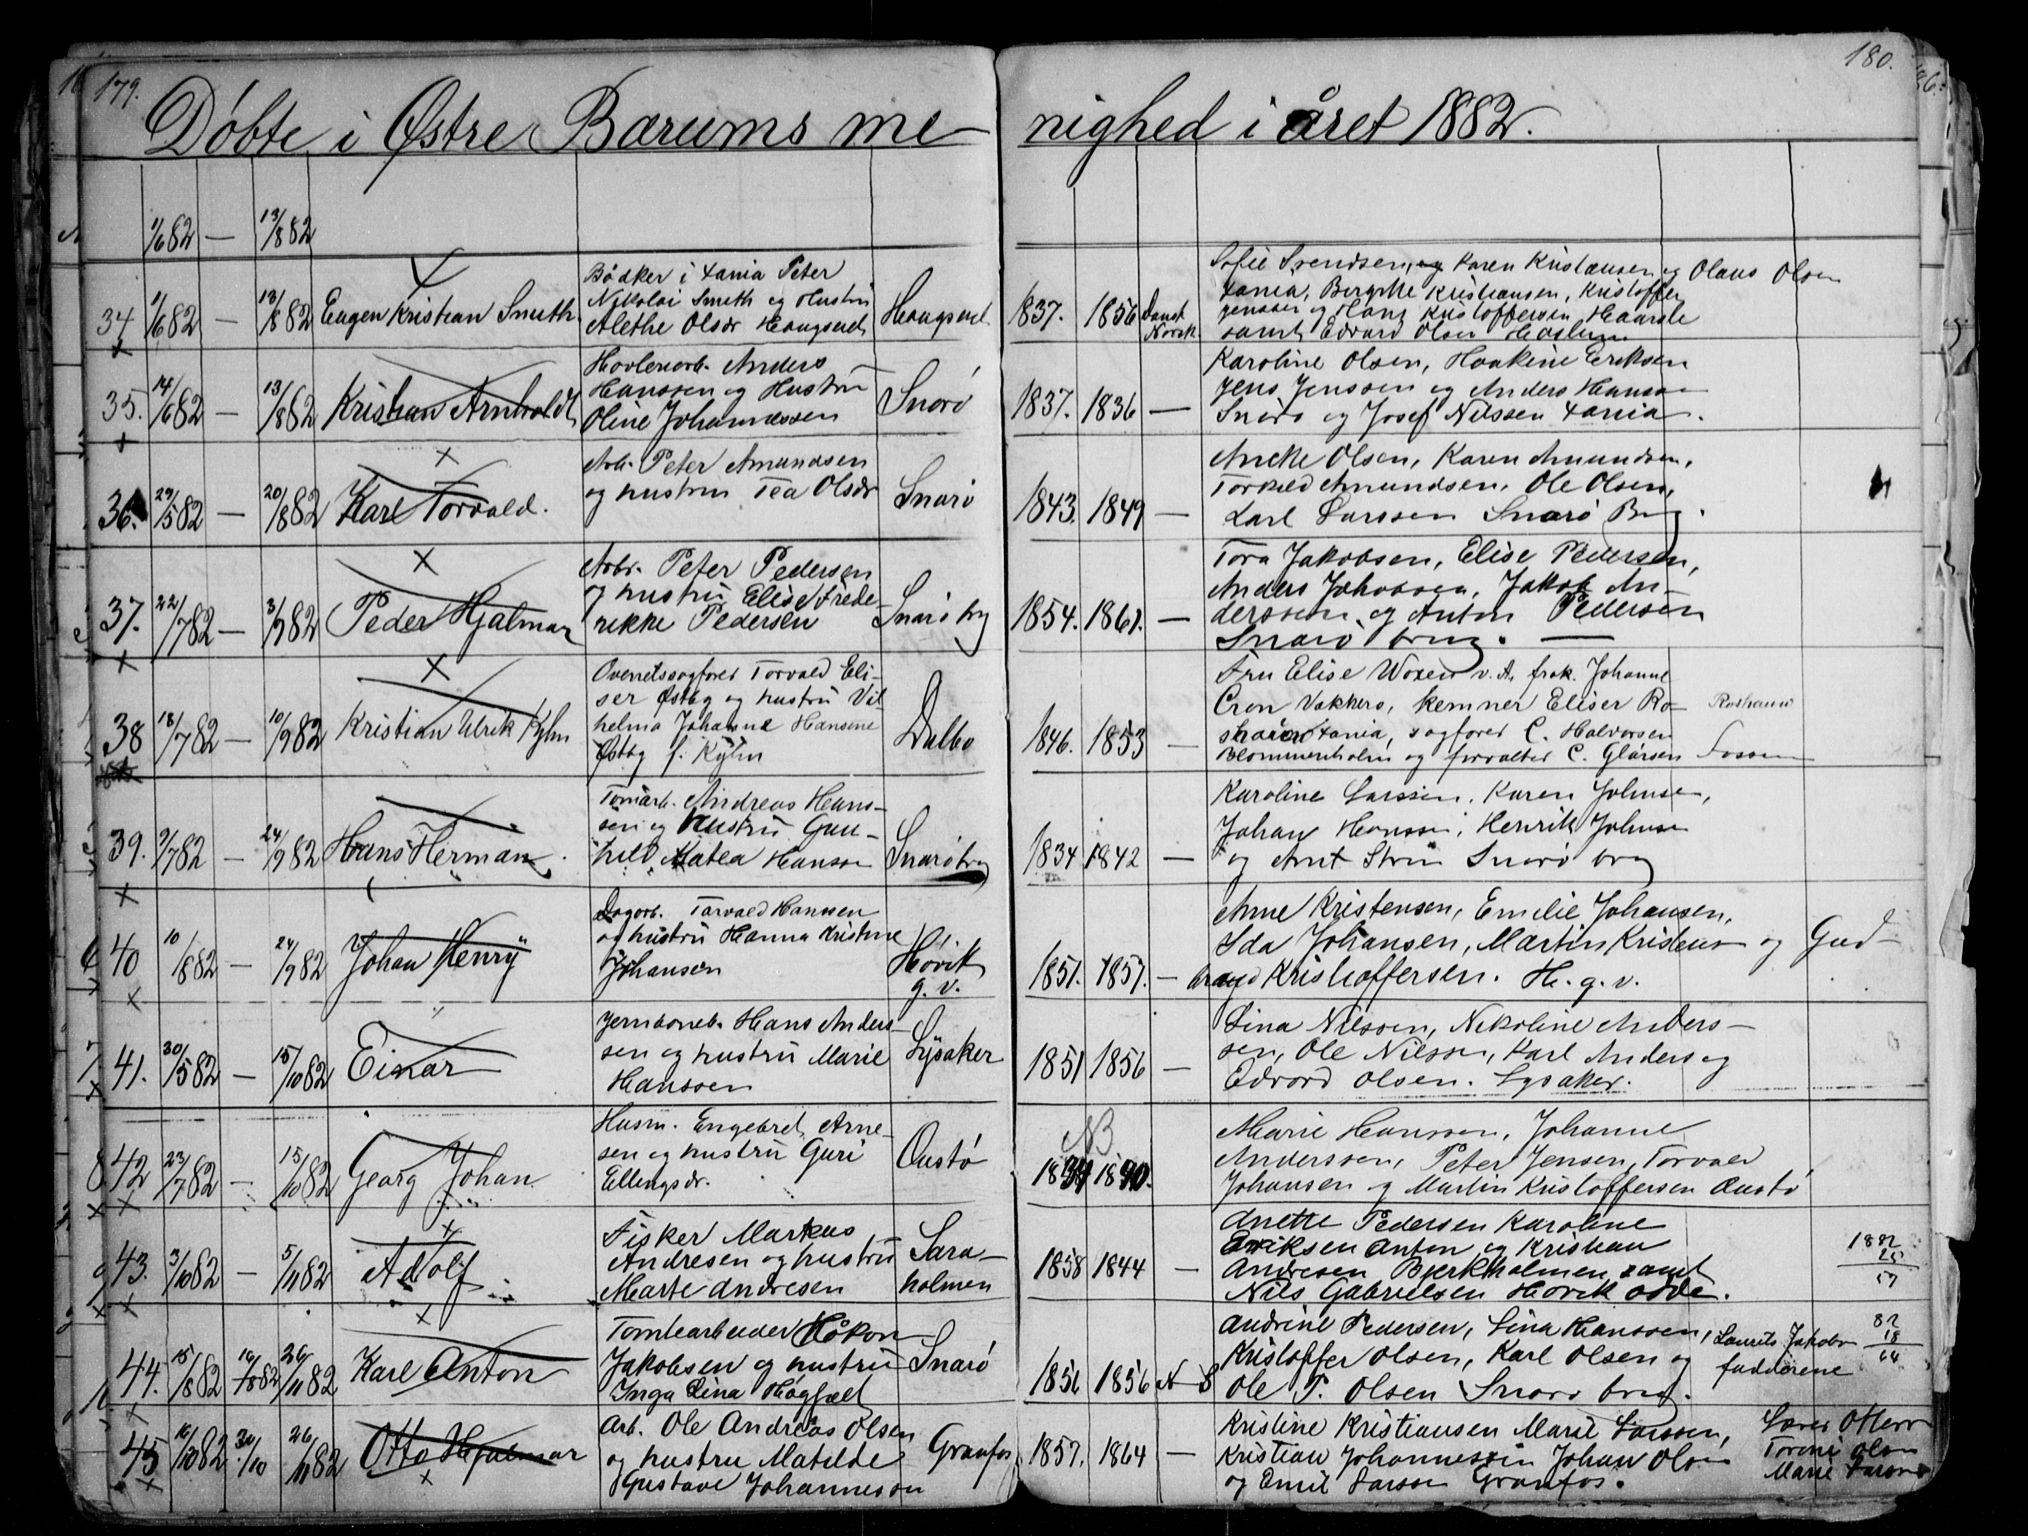 179.
180.
Döbte i Østre Bærums me-
nighed i året 1882.
1/6 82 — 13/8 82
34 1/6 82 — 13/8 82 Eugen Kristian Smith
Bödker i Xania Peter
Nikolai Smith og Hustru
Alethe Olsdr Haugsend
Haugsend
1837. 1856 Dansk
Norsk
Sofie Svendsen, og Karen Kristiansen og Olaus Olsen
Xania, Bergitte Kristiansen, Kristoffer
Jenssen og Hans Kristoffersen Haarste
samt Edvard Olsen Haslum
35. 14/6 82 — 13/8 82 Kristian Arnholdt
Hövleriarb. Anders
Hanssen og Hustru
Oline Johannessen
Snarö
1837. 1836 —
Karoline Olsen, Haakine Eriksen
Jens Jenssen og Anders Hanssen
Snarö og Josef Nilssen Xania.
36. 29/5 82 — 20/8 82 Karl Torvald.
Arb. Peter Amundsen
og hustru Tea Olsdr
Snarö
1843. 1849 —
Aneke Olsen, Karen Amundsen,
Torkild Amundsen, Ole Olsen,
Karl Larssen Snarö Brug.
37. 22/7 82 — 3/9 82 Peder Hjalmar
Arbr. Peter Pedersen
og hustru Elise Frede-
rikke Pedersen
Snarö brug
1854. 1861. —
Tora Jakobsen, Elise Pedersen,
Anders Jakobsen, Jakob An-
derssen og Anton Pedersen
Snarö brug. —
38 18/7 82 — 10/9 82 Kristian Ulrik Kyhn
Overretssagförer Torvald Eli-
ser Østbg og hustru Vil
helma Johanne Hansine
Østbg f. Kyhn
Dalbo
1846. 1853 —
Fru Elise Woxen v. A. frøk. Johanne
Cron Vækkerö, kemner Eliser Ro-
shauw Xania, sagförer C. Halvorsen
Blommenholm og forvalter C. Glörsen Fossum
Roshauw
39. 9/7 82 — 24/9 82 Hans Herman.
Tomtarb. Andreas Hans-
sen og hustru Gun-
hild Matea Hanssen
Snarö brug
1834 1842 —
Karoline Larssen, Karen Johnsen,
Johan Hanssen, Henrik Johnsen
og Arnt Strøm Snarö brug
40 10/8 82 — 24/9 82 Johan Henrÿ
Dagarb. Torvald Hanssen
og hustru Hanna Kristine
Johansen
Hövik
g. v.
1851. 1857. —
Anne Kristensen, Emilie Johansen,
Ida Johansen, Martin Kristensen og Gud-
brand Kristoffersen. H. g. v.
41. 30/5 82 — 15/10 82 Einar
Jernbaneb. Hans Anders-
sen og hustru Marie
Hanssen
Lysaker
1851 1856 —
Lina Nilssen, Nikoline Anders-
sen, Ole Nilssen, Karl Anders og
Edvard Olsen. Lysaker.
42 23/7 82 — 15/10 82 Georg Johan
Husm. Engebret Arne-
sen og hustru Guri
Ellingsdr.
Oustö
NB
1834 1840.
Marie Hanssen, Johanne
Anderssen, Peter Jensen, Torvald
Johansen og Martin Kristoffersen Oustö
43. 3/10 82 — 5/11 82 Adolf
Fisker Markus
Andresen og hustru
Marte Andresen
Sara-
holmen
1858 1844 —
Anette Pedersen Karoline
Eriksen Anton og Kristian
Andresen Bjerkholmen samt
Nils Gabrielsen Hövik odde.
1882
25
57
44. 15/8 82 16/8 82 26/11 82 Karl Anton
Tomtearbeider Håkon
Jakobsen og hustru
Inga Lina Høgfælt
Snarö
1856 1856 N S
Andrine Pedersen, Lina Hanssen,
Kristoffer Olsen, Karl Olsen og
Ole P. Olsen Snarö brug.
Laurits Jakobs
fadderene
82
18
64
45 16/10 82 30/10 26/11 82 Otto Hjalmar
Arb. Ole Andreas Olsen
og hustru Matilde
Gustave Johannesen
Granfos
1857. 1864 —
Kristine Kristiansen Marie Larssen,
Kristian Johannessen Johan Olsen
og Emil Larssen Granfos.
Torine Olsen
Marie Larssen